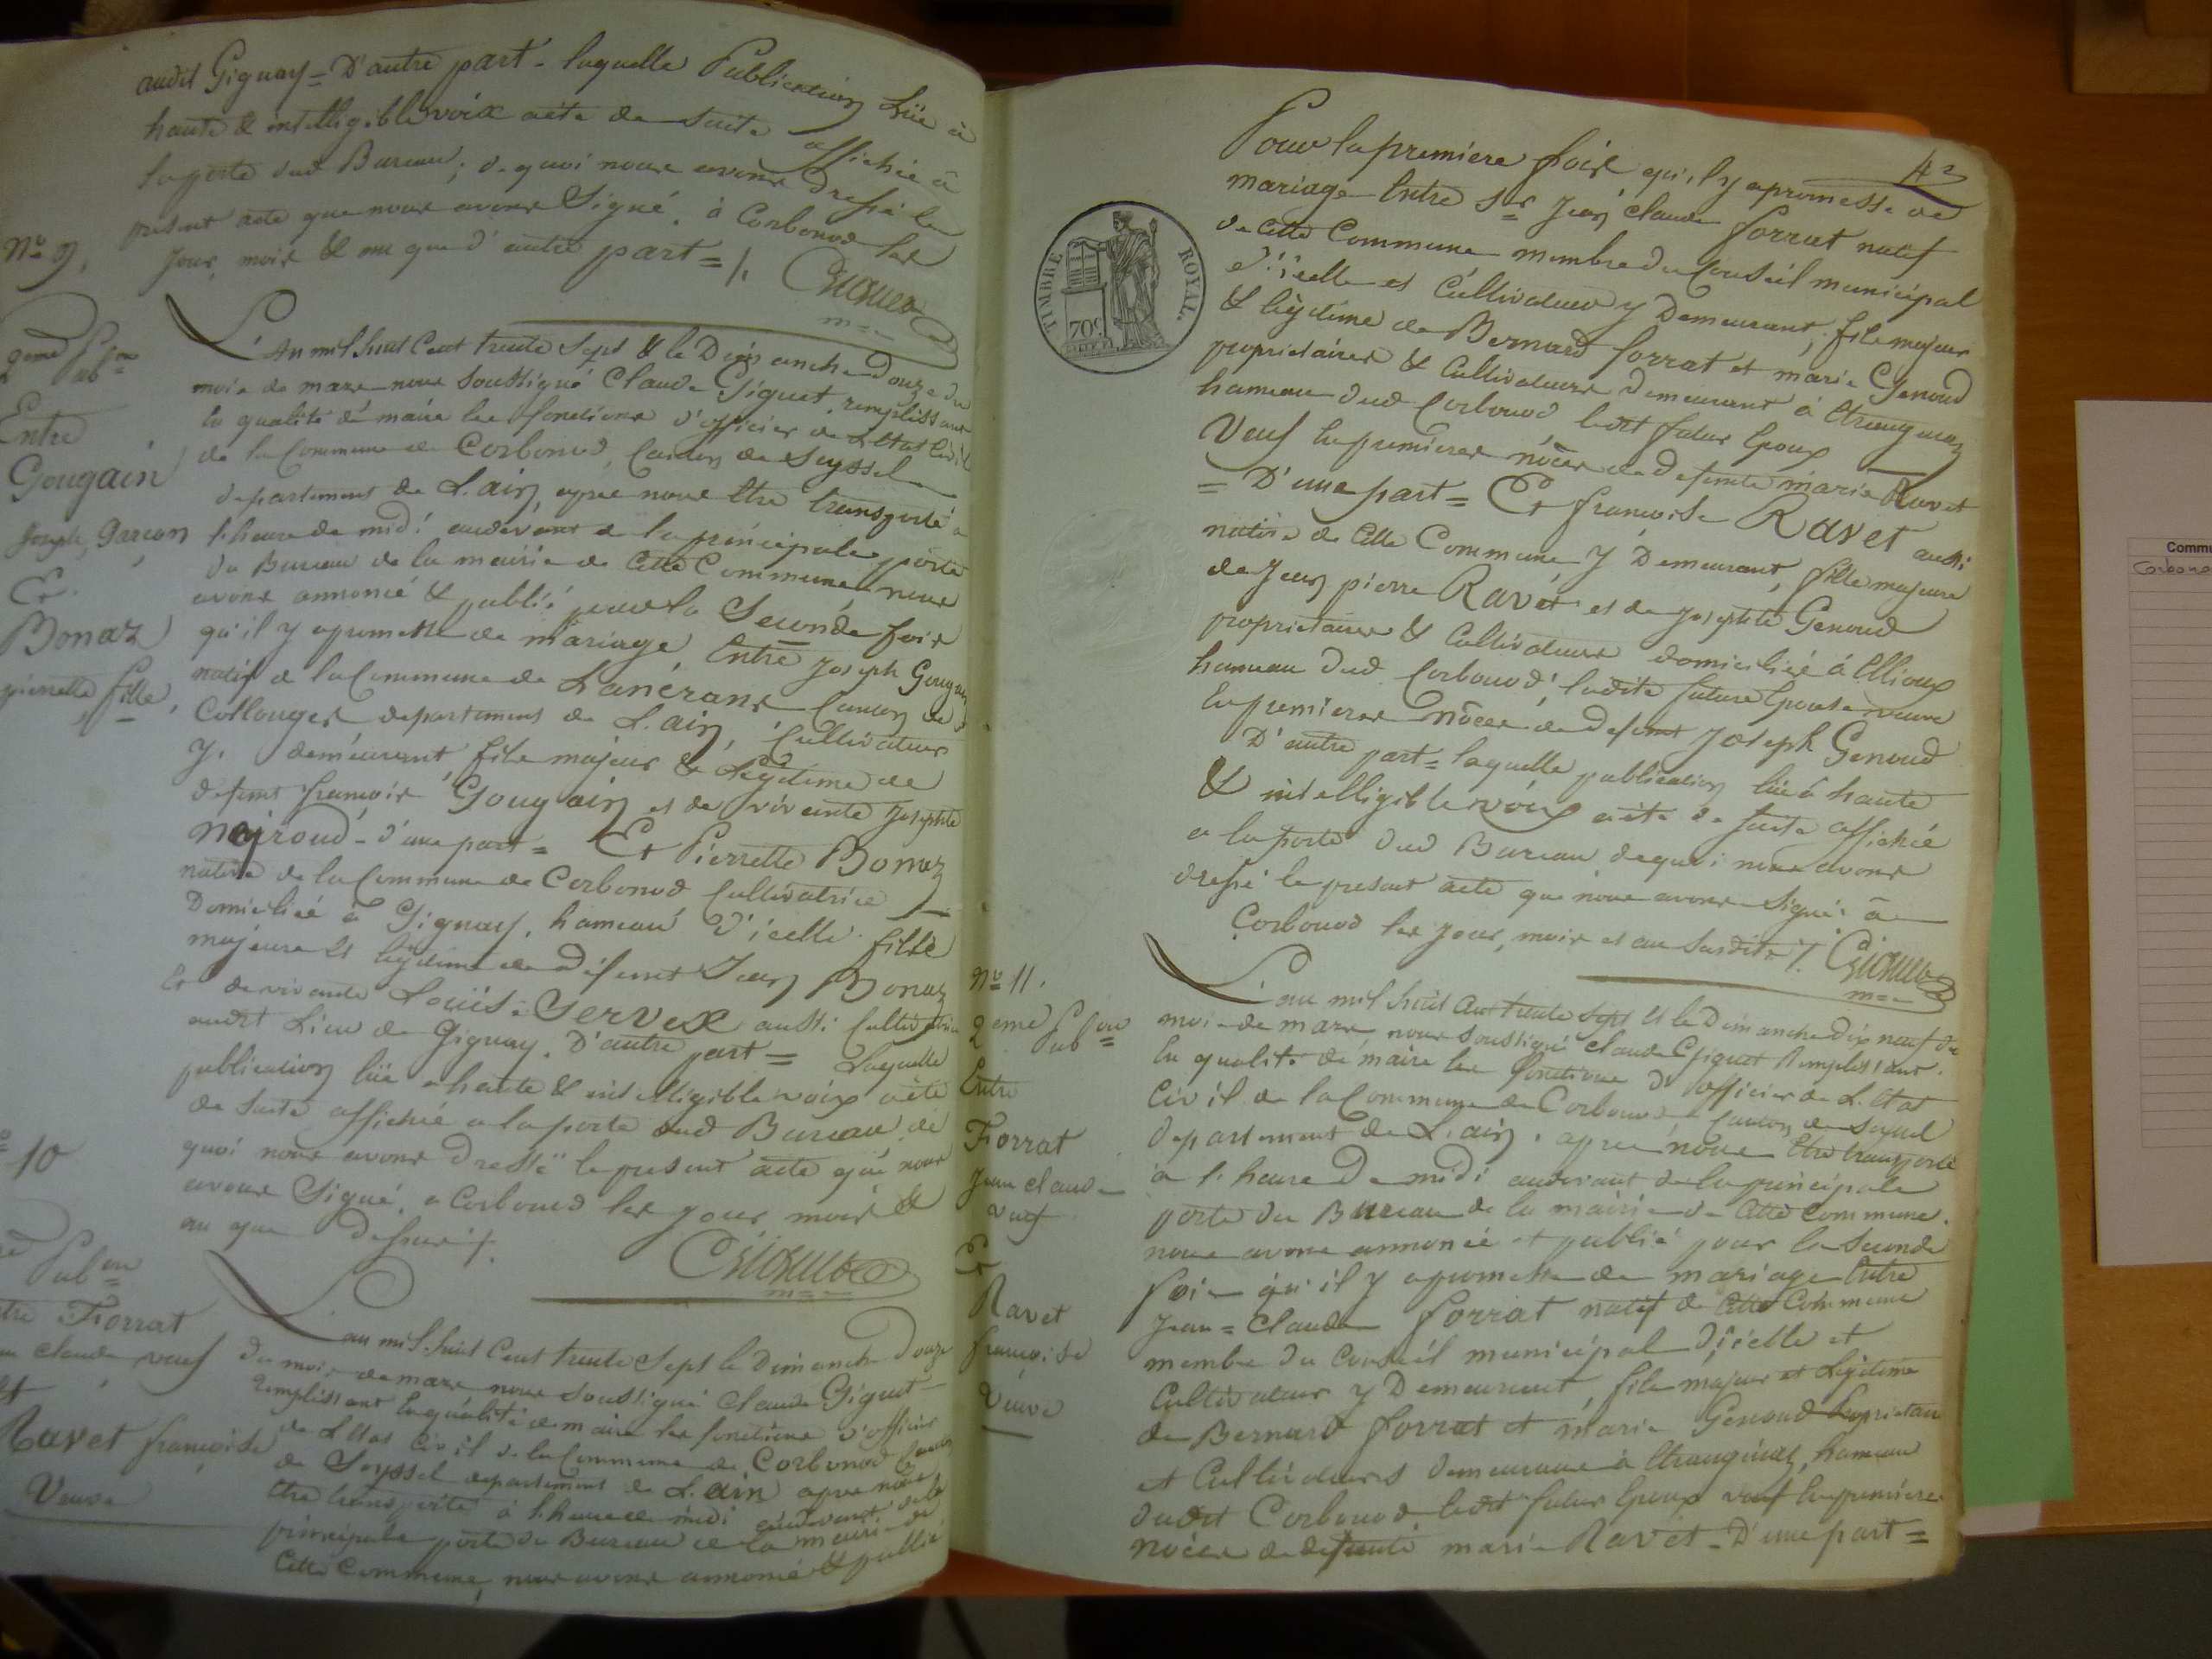 audit Gignay = D'autre part - laquelle Publication Lüe à
haute & intelligible voix aété de suite affichée à
la porte dud Bureau; de quoi nous avons dressé le
présent acte que nous avons Signé. à Corbonod les
jour, mois & an que d'autre part = /.
N° 9.
2eme Pubon
Entre
Gougain
Joseph, Garçon
Et
Bonaz
pierrette fille,
L'An mil huit Cent trente Sept & le Dimanche douze du
mois de mars nous soussigné Claude Giguet, remplissant
la qualité de maire les fonctions d'officier de L'Etat Civil
de la Commune de Corbonod, Canton de Seyssel
departement de L'ain, apres nous être transporté à
l'heure de midi audevant de la principale porte
du Bureau de la mairie de Cette Commune nous
avons annoncé & publié pour la Seconde fois
qu'il y a promesse de mariage Entre Joseph Gougain
natif de la Commune de Lanérans Canton de
Collonges departement de L'ain, Cultivateur
y demeurant fils majeur & Légitime de
defunt françois Gougain et de vivante Josephte
Nojroud - d'une part = Et Pierrette Bonaz
native de la Commune de Corbonod Cultivatrice
Domiciliée à Gignay, hameau d'icelle fille
majeure et légitime de défunt Jean Bonaz
Et de vivante Louïse Servex aussi Cultivatrice
audit Lieu de Gignay. D'autre part = Laquelle
publication lüe a haute & intelligible voix aété
de suite affichée a la porte dud Bureau de
quoi nous avons Dressé le présent acte que nous
avons Signé, a Corbonod les jour mois &
an que dessus /.
10
Pubon
Entre Forrat
Claude veuf
Et
Ravet françoise
Veuve
L'an mil huit Cent trente Sept le Dimanche Douze
du mois de mars nous soussigné Claude Giguet
remplissant la qualité de maire les fonctions d'officier
de L'Etat Civil de la Commune de Corbonod Canton
de Seyssel departement de L'ain apres nous
être transporté à l'heure de midi audevant de la
principale porte du Bureau de la mairie de
Cette Commune, nous avons annoncé & publié
42
Pour la premiere fois qu'il y a promesse de
mariage Entre Sr Jean Claude forrat natif
de Cette Commune membre du Conseil municipal
d'icelle et Cultivateur y Demeurant, fils majeur
& légitime de Bernard forrat et marie Genoud
propriétaires & Cultivateurs demeurant à Etranginaz
hameau dud Corbonod ledit futur Epoux
Veuf En premieres nôces de defunte marie Ravet
= D'une part = Et françoise Ravet aussi
native de Cette Commune y Demeurant, fille majeure
de Jean pierre Ravet et de Josephte Genoud
propriétaires & Cultivateurs domiciliés à Ellioux
hameau dud. Corbonod, ladite future Epouse veuve
En premieres nôces de defunt Joseph Genoud
D'autre part = laquelle publication lüe à haute
& intelligible voix aété de suite affichée
a la porte dud Bureau de quoi nous avons
dressé le present acte que nous avons Signé. à
Corbonod les jour, mois et an susdits /.
TIMBRE ROYAL.
70c
N° 11.
2eme Pubon
Entre
Forrat
Jean claude
veuf
Et
Ravet
françoise
Veuve
L'an mil huit Cent trente sept et le Dimanche Dix neuf du
mois de mars nous soussigné Claude Giguet Remplissant
la qualité de maire les fonctions d'officier de L'Etat
Civil de la Commune de Corbonod Canton de Seyssel
Departement de L'ain, apres nous être transporté
à l'heure De midi audevant de la principale
porte du Bureau de la mairie de Cette Commune.
nous avons annoncé et publié pour la Seconde
fois qu'il y a promesse de mariage Entre
Jean = Claude forrat natif de Cette Commune
membre du Conseil municipal d'icelle et
Cultivateur y Demeurant, fils majeur et Légitime
de Bernard forrat et marie Genoud Propriétaires
et Cultivateurs demeurant à Etranginaz, hameau
dudit Corbonod ledit futur Epoux veuf En premieres
nôces de defunte marie Ravet - D'une part =
Commu
Corbono